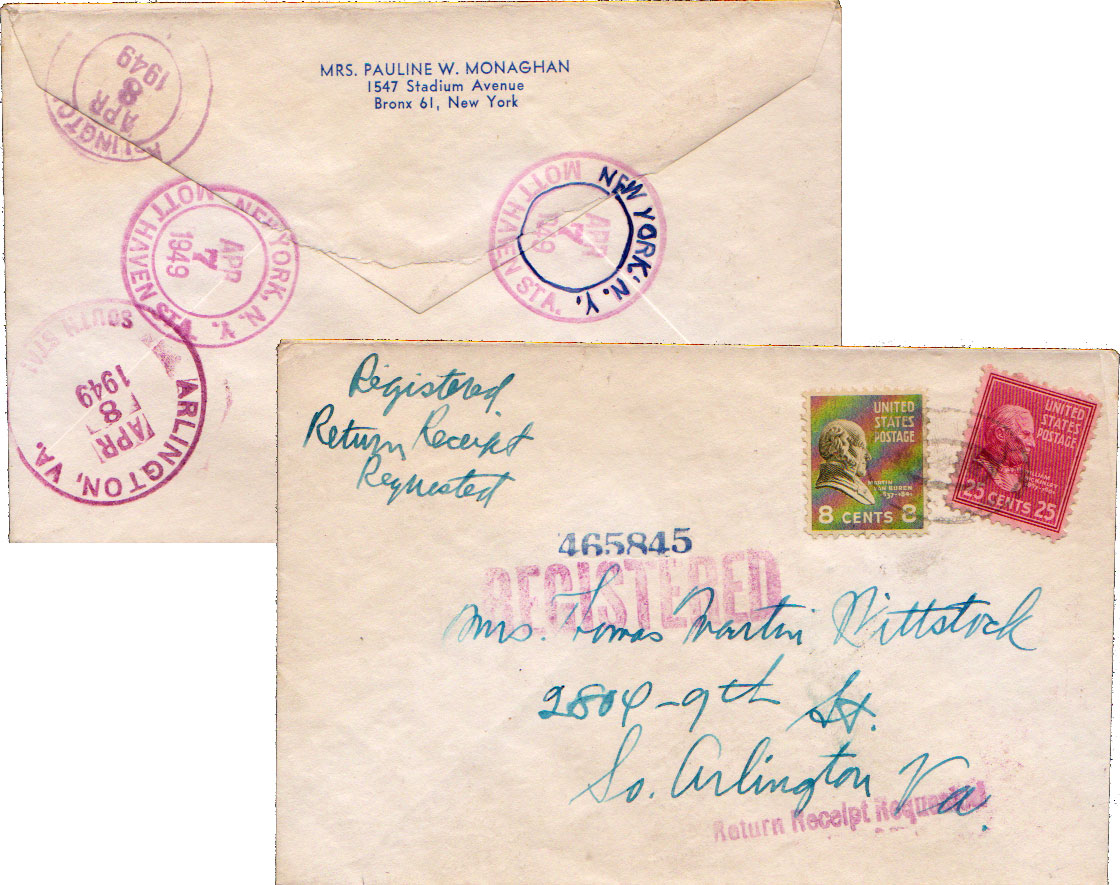 MRS. PAULINE W. MONAGHAN
1547 Stadium Avenue
Bronx 61, New York
APR
8
1949
NEW YORK, N.Y.
MOTT HAVEN STA.
APR
7
1949
NEW YORK, N.Y.
MOTT HAVEN STA.
APR
7
1949
ARLINGTON, VA.
SOUTH STA.
APR
8
1949
Registered
Return Receipt
Requested
UNITED
STATES
POSTAGE
MARTIN
VAN BUREN
8 CENTS 8
UNITED
STATES
POSTAGE
25 CENTS 25
465845
REGISTERED
Mrs. Tomas Martin Wittstock
2804-9th St.
So. Arlington Va.
Return Receipt Requested